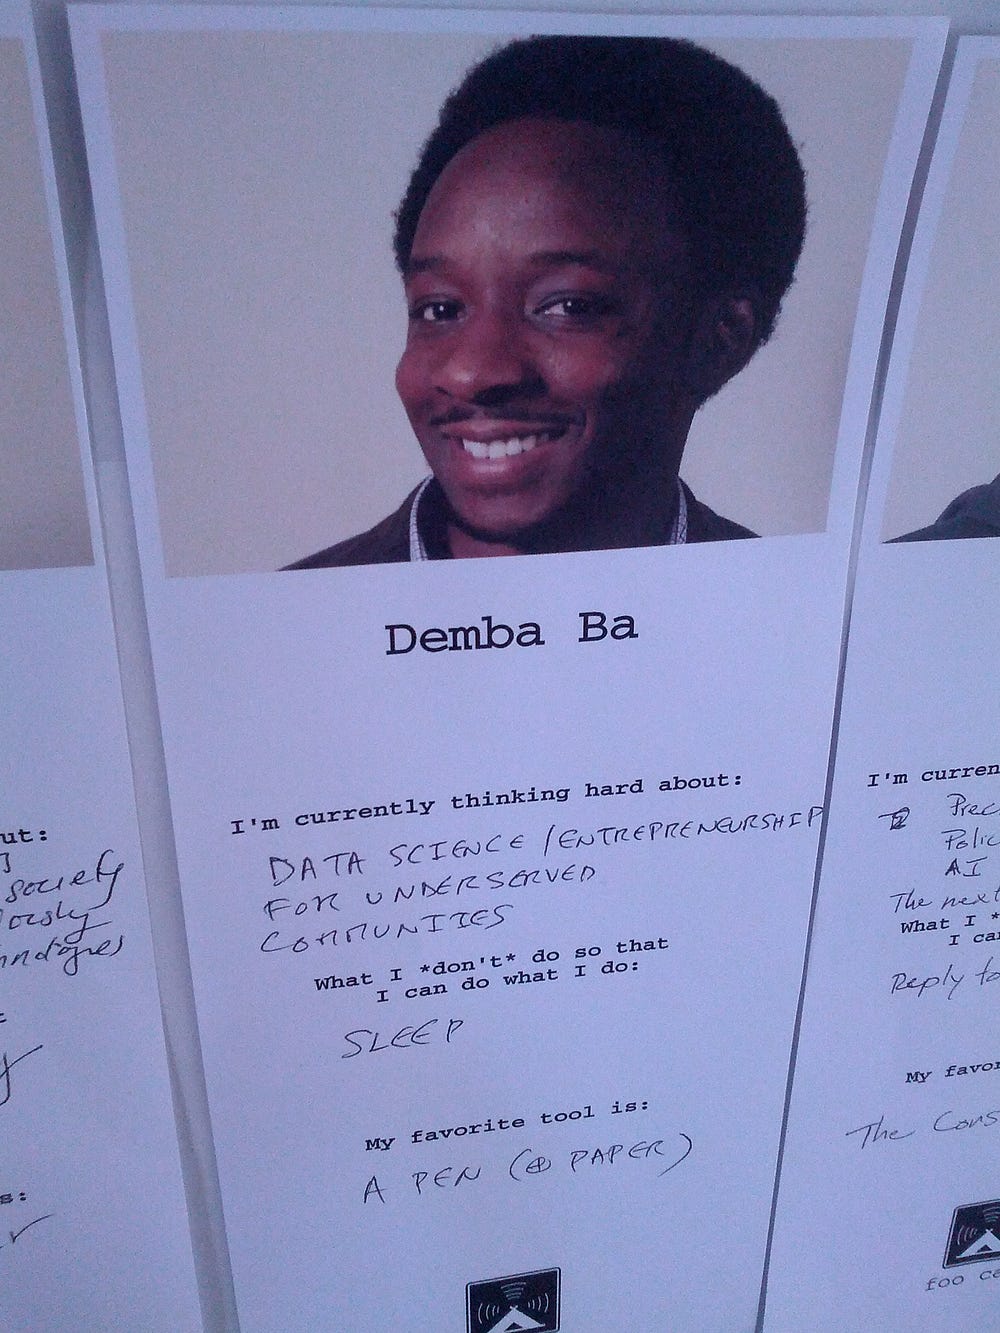 Demba Ba
I'm currently thinking hard about:
DATA SCIENCE / ENTREPRENEURSHIP
FOR UNDERSERVED
COMMUNITIES
What I *don't* do so that
I can do what I do:
SLEEP
My favorite tool is:
A PEN (⊕ PAPER)
ut:
society
I'm curren
Prec
Polic
AI
The next
What I *
I ca
Reply to
My favor
The Cons
foo ca
s: